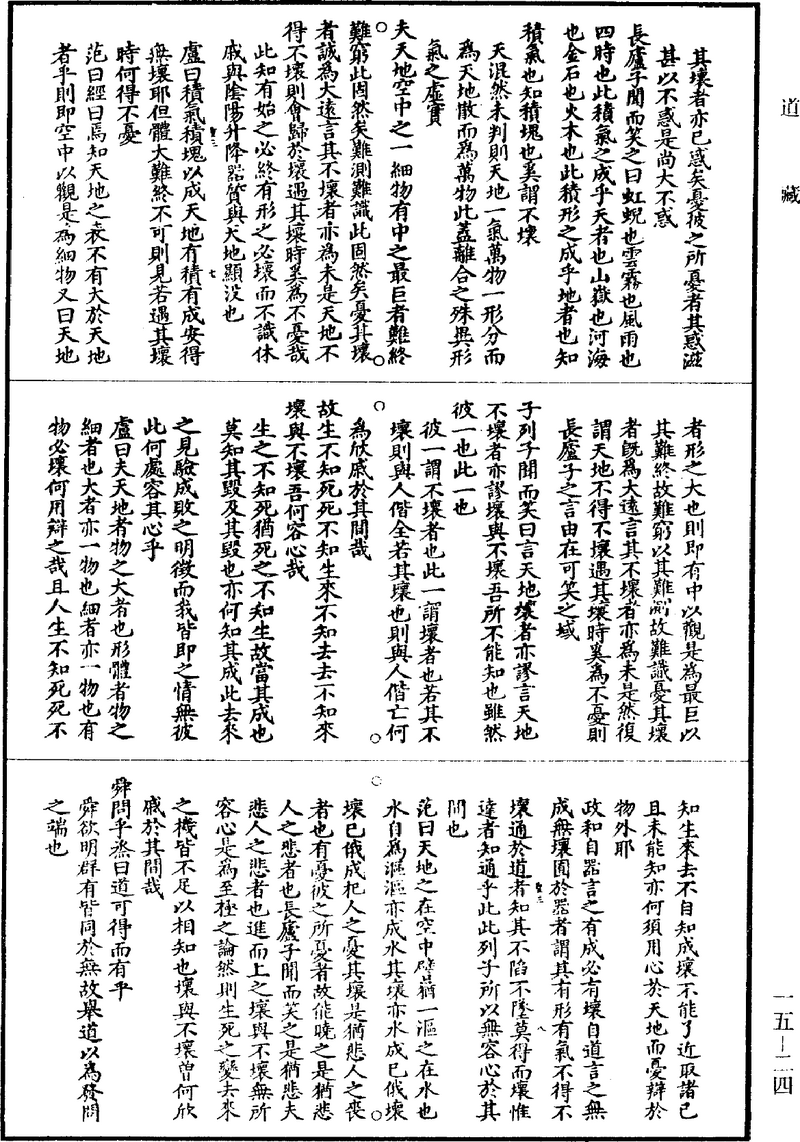 道藏
其壞者亦已惑矣憂彼之所憂者其惑滋
甚以不惑是尚大不惑
長廬子聞而笑之曰虹蜺也雲霧也風雨也
四時也此積氣之成乎天者也山嶽也河海
也金石也火木也此積形之成乎地者也知
積氣也知積塊也奚謂不壞
天混然未判則天地一氣萬物一形分而
為天地散而為萬物此蓋離合之殊異形
氣之虛實
夫天地空中之一細物有中之最巨者難終
難窮此固然矣難測難識此固然矣憂其壞
者誠為大遠言其不壞者亦為未是天地不
得不壞則會歸於壞遇其壞時奚為不憂哉
此知有始之必終有形之必壞而不識休
戚與陰陽升降器質與大地顯沒也
盧曰積氣積塊以成天地有積有成安得
無壞耶但體大難終不可則見若遇其壞
時何得不憂
范曰經曰焉知天地之表不有大於天地
者乎則即空中以觀是為細物又曰天地
者形之大也則即有中以觀是為最巨以
其難終故難窮以其難測故難識憂其壞
者既為大遠言其不壞者亦為未是然復
謂天地不得不壞遇其壞時奚為不憂則
長廬子之言由在可笑之域
子列子聞而笑曰言天地壞者亦謬言天地
不壞者亦謬壞與不壞吾所不能知也雖然
彼一也此一也
彼一謂不壞者也此一謂壞者也若其不
壞則與人偕全若其壞也則與人偕亡何
為欣戚於其間哉
故生不知死死不知生來不知去去不知來
壞與不壞吾何容心哉
生之不知死猶死之不知生故當其成也
莫知其毀及其毀也亦何知其成此去來
之見驗成敗之明徵而我皆即之情無彼
此何處容其心乎
盧曰夫天地者物之大者也形體者物之
細者也大者亦一物也細者亦一物也有
物必壞何用辯之哉且人生不知死死不
知生來去不自知成壞不能了近取諸已
且未能知亦何須用心於天地而憂辯於
物外耶
政和自器言之有成必有壞自道言之無
成無壞囿於器者謂其有形有氣不得不
壞通於道者知其不陷不墜莫得而壞惟
達者知通乎此此列子所以無容心於其
間也
范曰天地之在空中譬猶一漚之在水也
水自為漚漚亦成水其壞亦水成已俄壞
壞已俄成杞人之憂其壞是猶悲人之喪
者也有憂彼之所憂者故能曉之是猶悲
人之悲者也長廬子聞而笑之是猶悲夫
悲人之悲者也進而上之壞與不壞無所
容心是為至極之論然則生死之變去來
之機皆不足以相知也壞與不壞曾何欣
戚於其間哉
舜問乎烝曰道可得而有乎
舜欲明群有皆同於無故舉道以為發問
之端也
一五-二四